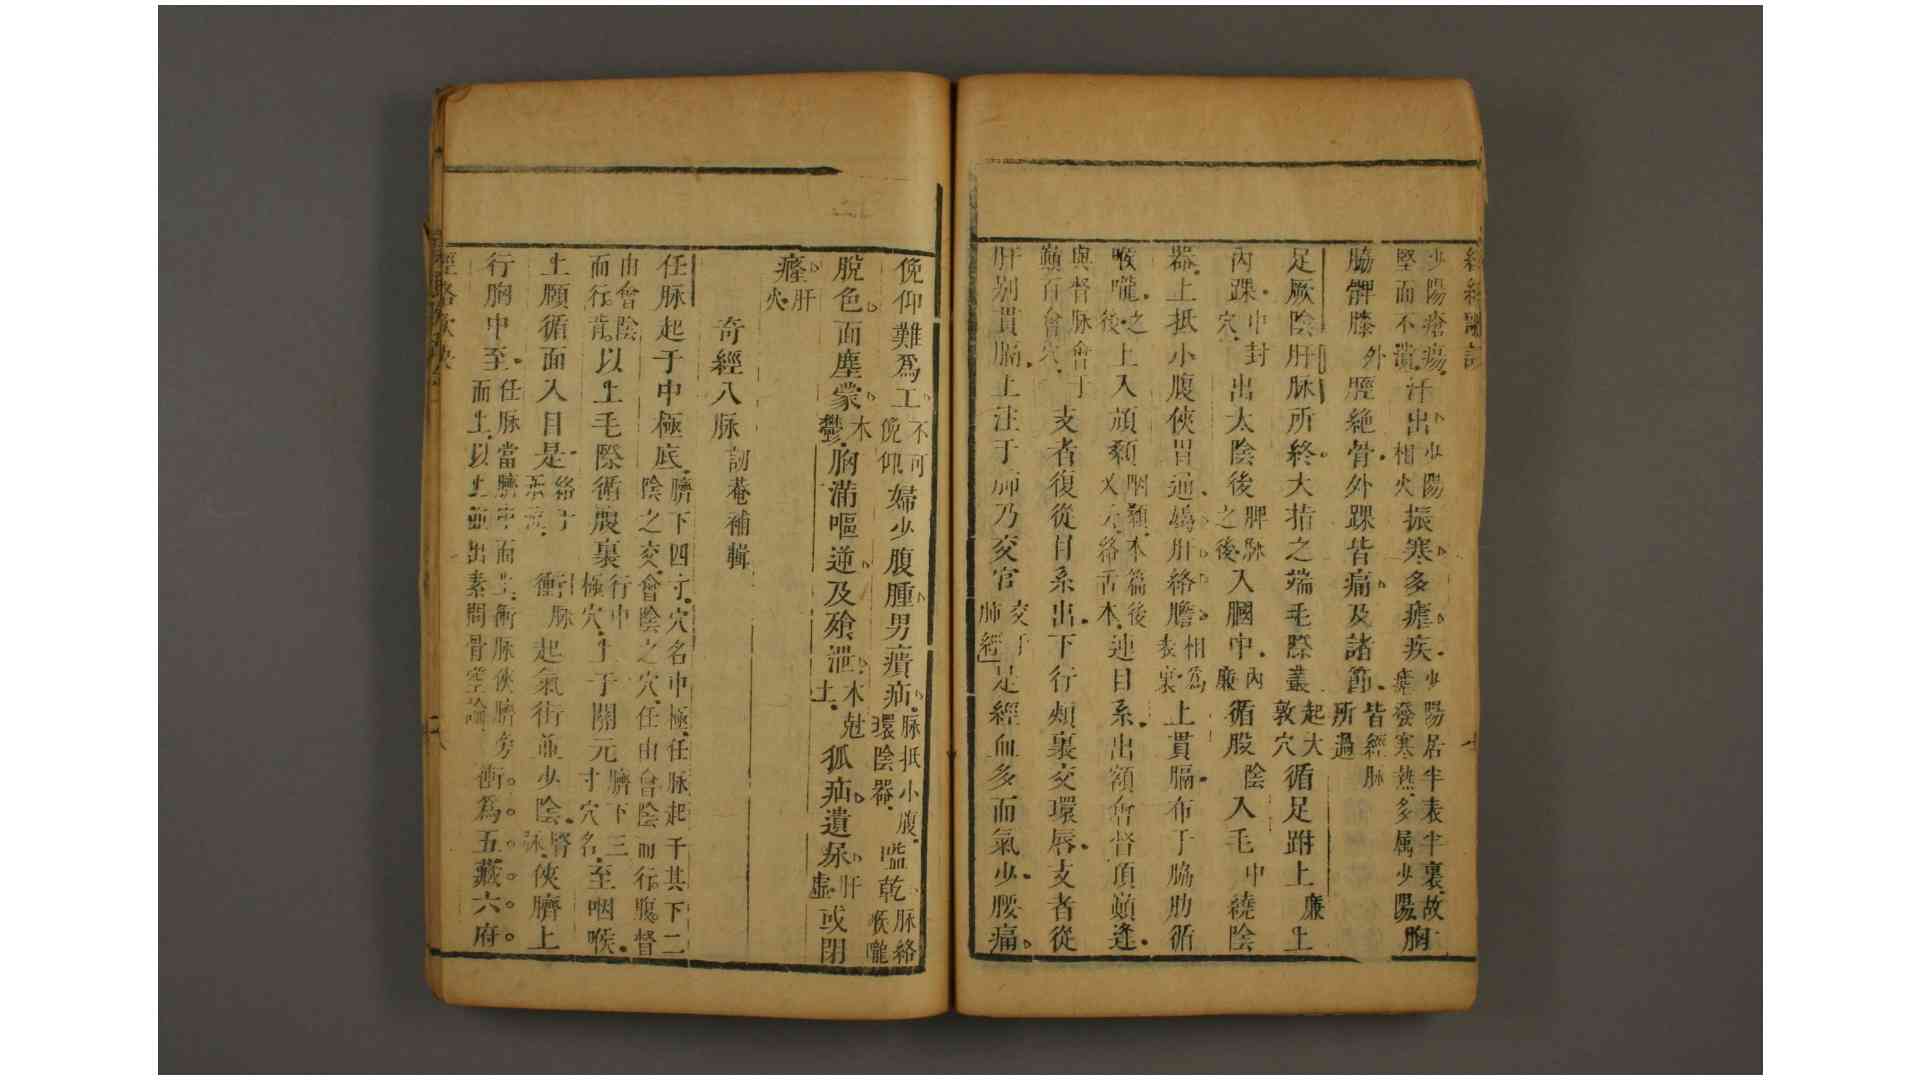 少陽瘡瘍堅而不潰汗出少陽相火振寒多瘧疾少陽居半表半裏故瘧發寒熱多属少陽胸
脇髀膝外脛絶骨外踝皆痛及諸節皆經脉所過
足厥陰肝脉所終大指之端毛際叢起大敦穴循足跗上廉上
內踝中封穴出太陰後脾脉之後入膕中內廉循股陰入毛中繞陰
器上抵小腹俠胃逼屬肝絡膽相爲表裏上貫膈布于脇肋循
喉嚨之後上入頏顙咽顙本篇後又云絡舌本連目系出額會督頂巔逢
與督脉會于巔百會穴支者復從目系出下行頰裏交環唇支者從
肝別貫膈上注于肺乃交宮交于肺經是經血多而氣少腰痛
俛仰難爲工不可俛仰婦少腹腫男㿉疝脉抵小腹環陰器嗌乾脉絡喉嚨
脫色面塵蒙木鬱胸滿嘔逆及飱泄木尅土狐疝遺尿肝虛或閉
癃肝火
奇經八脉訒菴補輯
任脉起于中極底臍下四寸穴名中極任脉起于其下二陰之交會陰之穴任由會陰而行腹督
由會陰而行背以上毛際循腹裏行中極穴上于關元臍下三寸穴名至咽喉
上頤循面入目是絡于承泣衝脉起氣街並少陰腎脉俠臍上
行胸中至任脉當臍中而上衝脉俠臍旁而上以上並出素問骨空論衝爲五藏六府